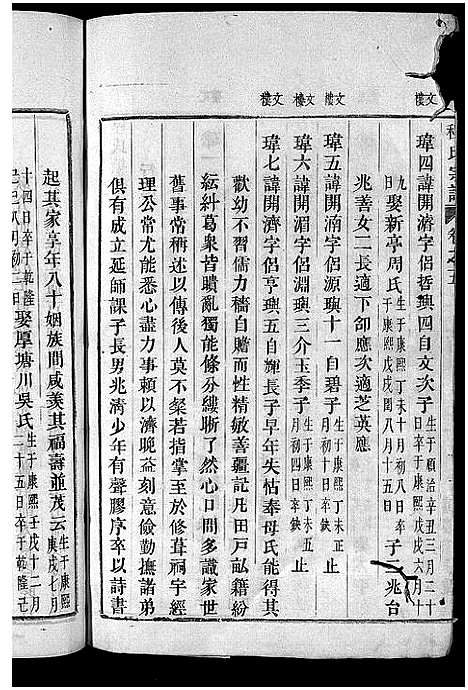 文樓 文樓 文樓 文樓
氏宗譜 卷之五
瑋四諱開濟字侶哲輿四自文次子生于順治辛丑三月二十
日卒于康熙戊戌六月十
九日娶新亭周氏生于康熙丁未十月初八日卒
于康熙戊戌閏八月十五日子一兆台
兆善女二長適下卻應次適芝英應
瑋五諱開湳字侶源輿十一自碧子生于康熙丁未正
月初十日卒缺止
瑋六諱開湄字侶淵輿三介玉季子生于康熙丁未五
月初四日卒缺止
瑋七諱開濟字侶亨輿五自輝長子早年失怙奉母氏能得其
歡幼不習儒力穡自贍而性精敏善疆記凡田戶畝籍紛
紜糾葛衆皆瞶亂獨能條分縷晰了然心口間多識家世
舊事常稱述以傳後人莫不粲若指掌所修葺祠宇經
理公常尤能悉心盡力事賴以濟晚益刻意儉勤撫諸弟
俱有成立延師課子長男兆淸少年有聲膠序卒以詩書
起其家享年八十姻族間咸羨其福壽並茂云生于康熙
戊戌七月
十四日卒于乾隆
己巳八月初三日娶厚塘川吳氏生于康熙壬戌十二月
二十五日卒于乾隆己